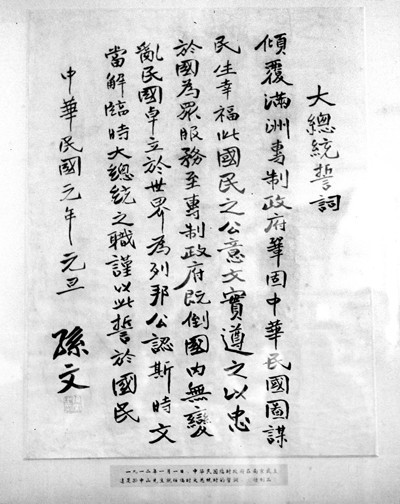 大總統誓詞
傾覆滿洲專制政府鞏固中華民國圖謀
民生幸福此國民之公意文實遵之以忠
於國為眾服務至專制政府既倒國內無變
亂民國卓立於世界為列邦公認斯時文
當解臨時大總統之職謹以此誓於國民
中華民國元年元旦
孫文
一九一二年一月一日，中华民国临时政府在南京成立
孙中山先生就任临时大总统时的誓词